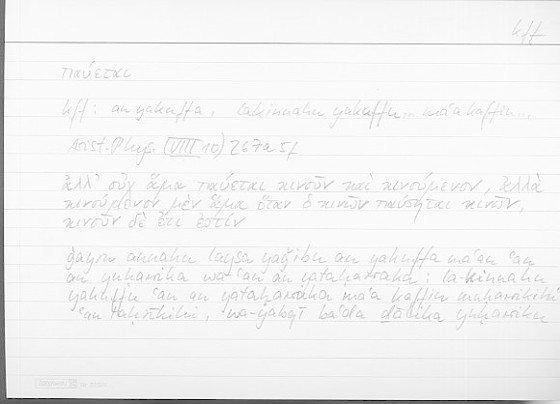 kff
παύεται
kff: an yakuffa, lākinnahu yakuffu... maʿa kaffin...
Arist. Phys. (VIII 10) 267a 5f
ἀλλ' οὐχ ἅμα παύεται κινοῦν καὶ κινούμενον, ἀλλὰ
κινούμενον μὲν ἅμα ὅταν ὁ κινῶν παύσηται κινῶν,
κινοῦν δὲ ἔτι ἐστίν
ġayra annahu laysa yaǧibu an yakuffa maʿan ʿan
an yuḥarrika wa-ʿan an yataḥarraka; lākinnahu
yakuffu ʿan an yataḥarraka maʿa kaffin muḥarrikihi
ʿan taḥrīkihi, wa-yabqī baʿda ḏālika yuḥarriku